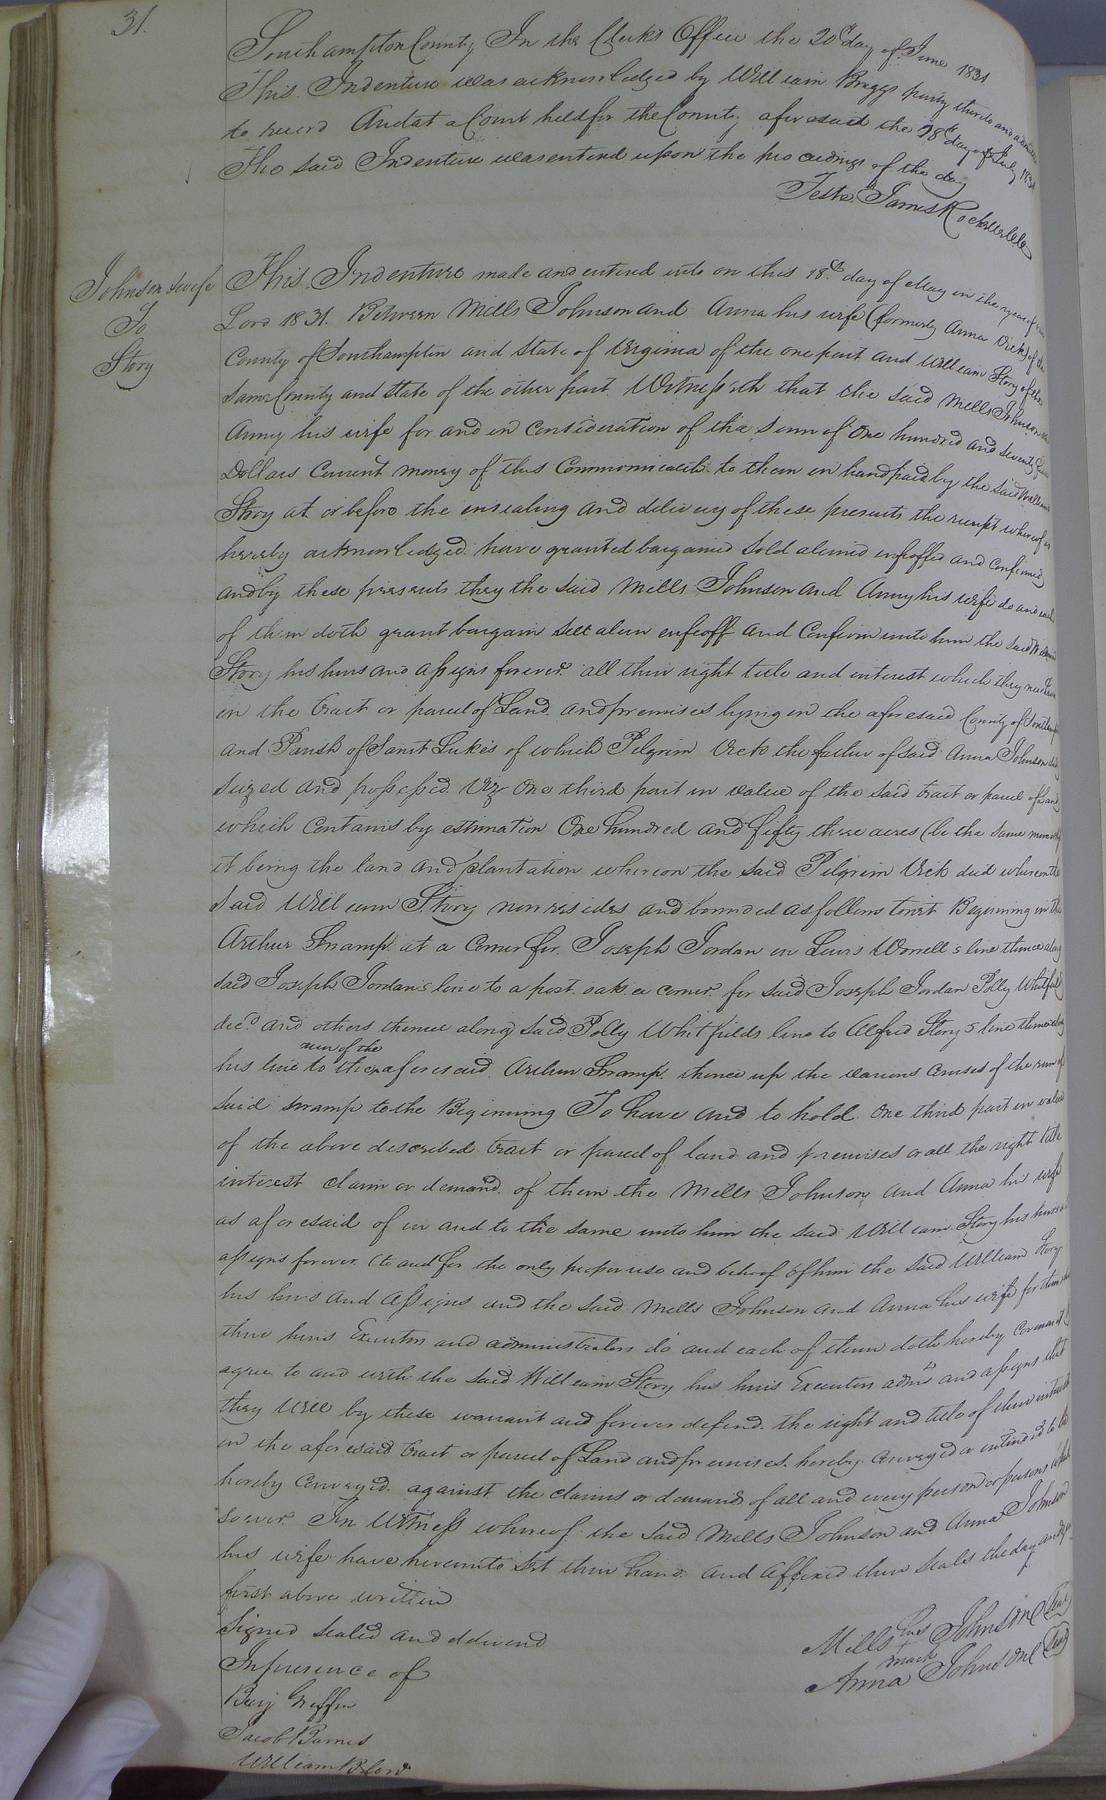 31.
Southampton County In the Clerks Office the 20th day of June 1831
This Indenture was acknowledged by William Briggs party thereto and admitted
to record And at a Court held for the County aforesaid the 18th day of July 1831
The said Indenture was enterd upon the proceedings of the day
Teste James Rochelle
Johnson & wife
To
Story
This Indenture made and entered into on this 18th day of May in the year of our
Lord 1831. Between Mills Johnson and Anna his wife (formerly Anna Vick) of the
County of Southampton and State of Virginia of the one part and William Story of the
Same County and State of the other part Witnesseth that the said Mills Johnson and
Anny his wife for and in Consideration of the Sum of One hundred and seventy
Dollars Current money of this Commonwealth to them in hand paid by the said William
Story at or before the ensealing and delivery of these presents the receipt whereof is
hereby acknowledged have granted bargained sold aliened enfeoffed and Confirmed
and by these presents they the said Mills Johnson and Anny his wife do and each
of them doth grant bargain sell alien enfeoff and Confirm unto him the said William
Story his heirs and assigns forever all their right title and interest which they now have
in the tract or parcel of Land and premises lying in the aforesaid County of Southampton
and Parish of Saint Lukes of which Pilgrim Vick the father of said Anna Johnson died
Seized and possessed. Viz One third part in value of the said tract or parcel of Land
which Contains by estimation One hundred and fifty three acres (be the same more or less
it being the land and plantation whereon the said Pilgrim Vick died whereon the
said William Story now resides and bounded as follows towit Beginning in the
Arthur Swamp at a Corner for Joseph Jordan in Lewis Worrell s line thence along
said Joseph Jordans line to a post oak a corner for said Joseph Jordan Polly Whitfield
decd. and others thence along said Polly Whitfields line to Alfred Story s line thence along
run of the
his line to the aforesaid Arthur Swamp thence up the various Courses of the run of
said swamp to the Beginning To have and to hold One third part in value
of the above described tract or parcel of land and premises or all the right title
interest claim or demand of them the Mills Johnson and Anna his wife
as aforesaid of in and to the same unto him the said William Story his heirs and
assigns forever (to and for the only proper use and behoof of him the said William Story
his heirs and assigns and the said Mills Johnson and Anna his wife for them
their heirs Executors and administrators do and each of them doth hereby Covenant &
agree to and with the said William Story his heirs Executors admrs and assigns that
they Will by these warrant and forever defend the right and title of their interest
in the aforesaid tract or parcel of Land and premises hereby Conveyed or intended to be
hereby Conveyed against the claims or demands of all and every person or persons whom
soever In Witness whereof the said Mills Johnson and Anna Johnson
his wife have hereunto set their hand and affixed their seals the day and year
first above written
Signed sealed and deliverd
In presence of
Benj Griffin
Jacob Barnes
William B
Mills his mark Johnson (Seal)
Anna Johnson (Seal)